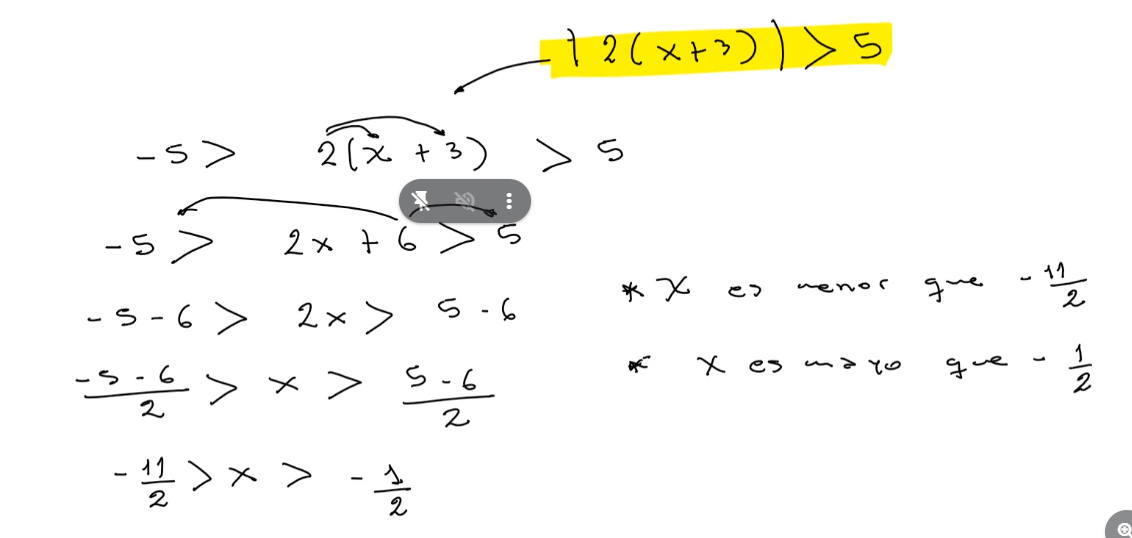 |2(x+3)|>5
-5> 2(x+3) > 5
-5> 2x+6 > 5
-5-6> 2x> 5-6
-5-6/2 > x > 5-6/2
-11/2 > x > -1/2
* X es menor que -11/2
* X es mayo que -1/2